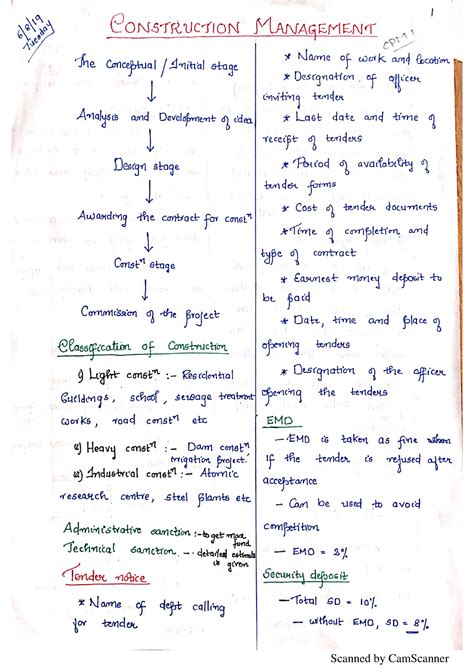 1
6/8/19
Tuesday
CONSTRUCTION MANAGEMENT
CPM 1
The Conceptual / Initial stage
Analysis and Development of idea
Design stage
Awarding the contract for constⁿ
Constⁿ stage
Commission of the project
Classification of Construction
i) Light constⁿ :- Residential
buildings, school, sewage treatment
works, road constⁿ etc
ii) Heavy constⁿ :- Dam constⁿ
irrigation project.
iii) Industrial constⁿ :- Atomic
research centre, steel plants etc
Administrative sanction :- to get max
fund
Technical sanction - detailed estimate
is given
Tender notice
* Name of dept calling
for tender
* Name of work and location
* Designation of officer
inviting tender
* Last date and time of
receipt of tenders
* Period of availability of
tender forms
* Cost of tender documents
* Time of completion and
type of contract
* Earnest money deposit to
be paid
* Date, time and place of
opening tenders
* Designation of the officer
opening the tenders
EMD
- EMD is taken as fine when
if the tender is refused after
acceptance
- Can be used to avoid
competition
- EMD = 2%
Security deposit
- Total SD = 10%
- without EMD, SD = 8%
Scanned by CamScanner